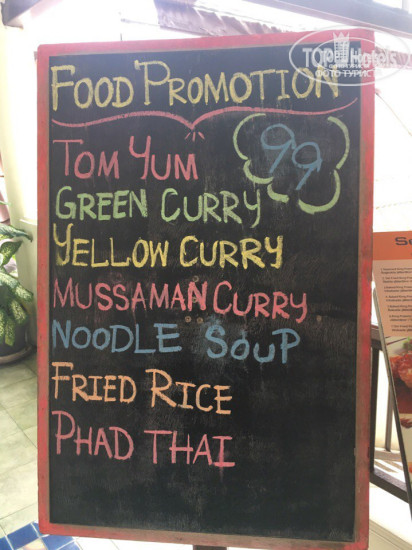 FOOD PROMOTION
99
TOM YUM
GREEN CURRY
YELLOW CURRY
MUSSAMAN CURRY
NOODLE SOUP
FRIED RICE
PHAD THAI